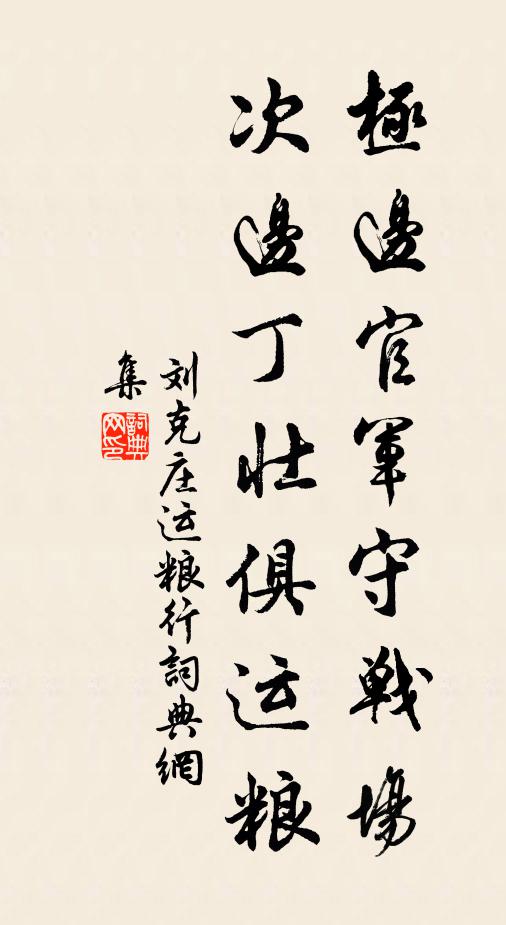 極邊官軍守戰場
次邊丁壯俱运粮
刘克庄运粮行詞典網
集
詞典网印